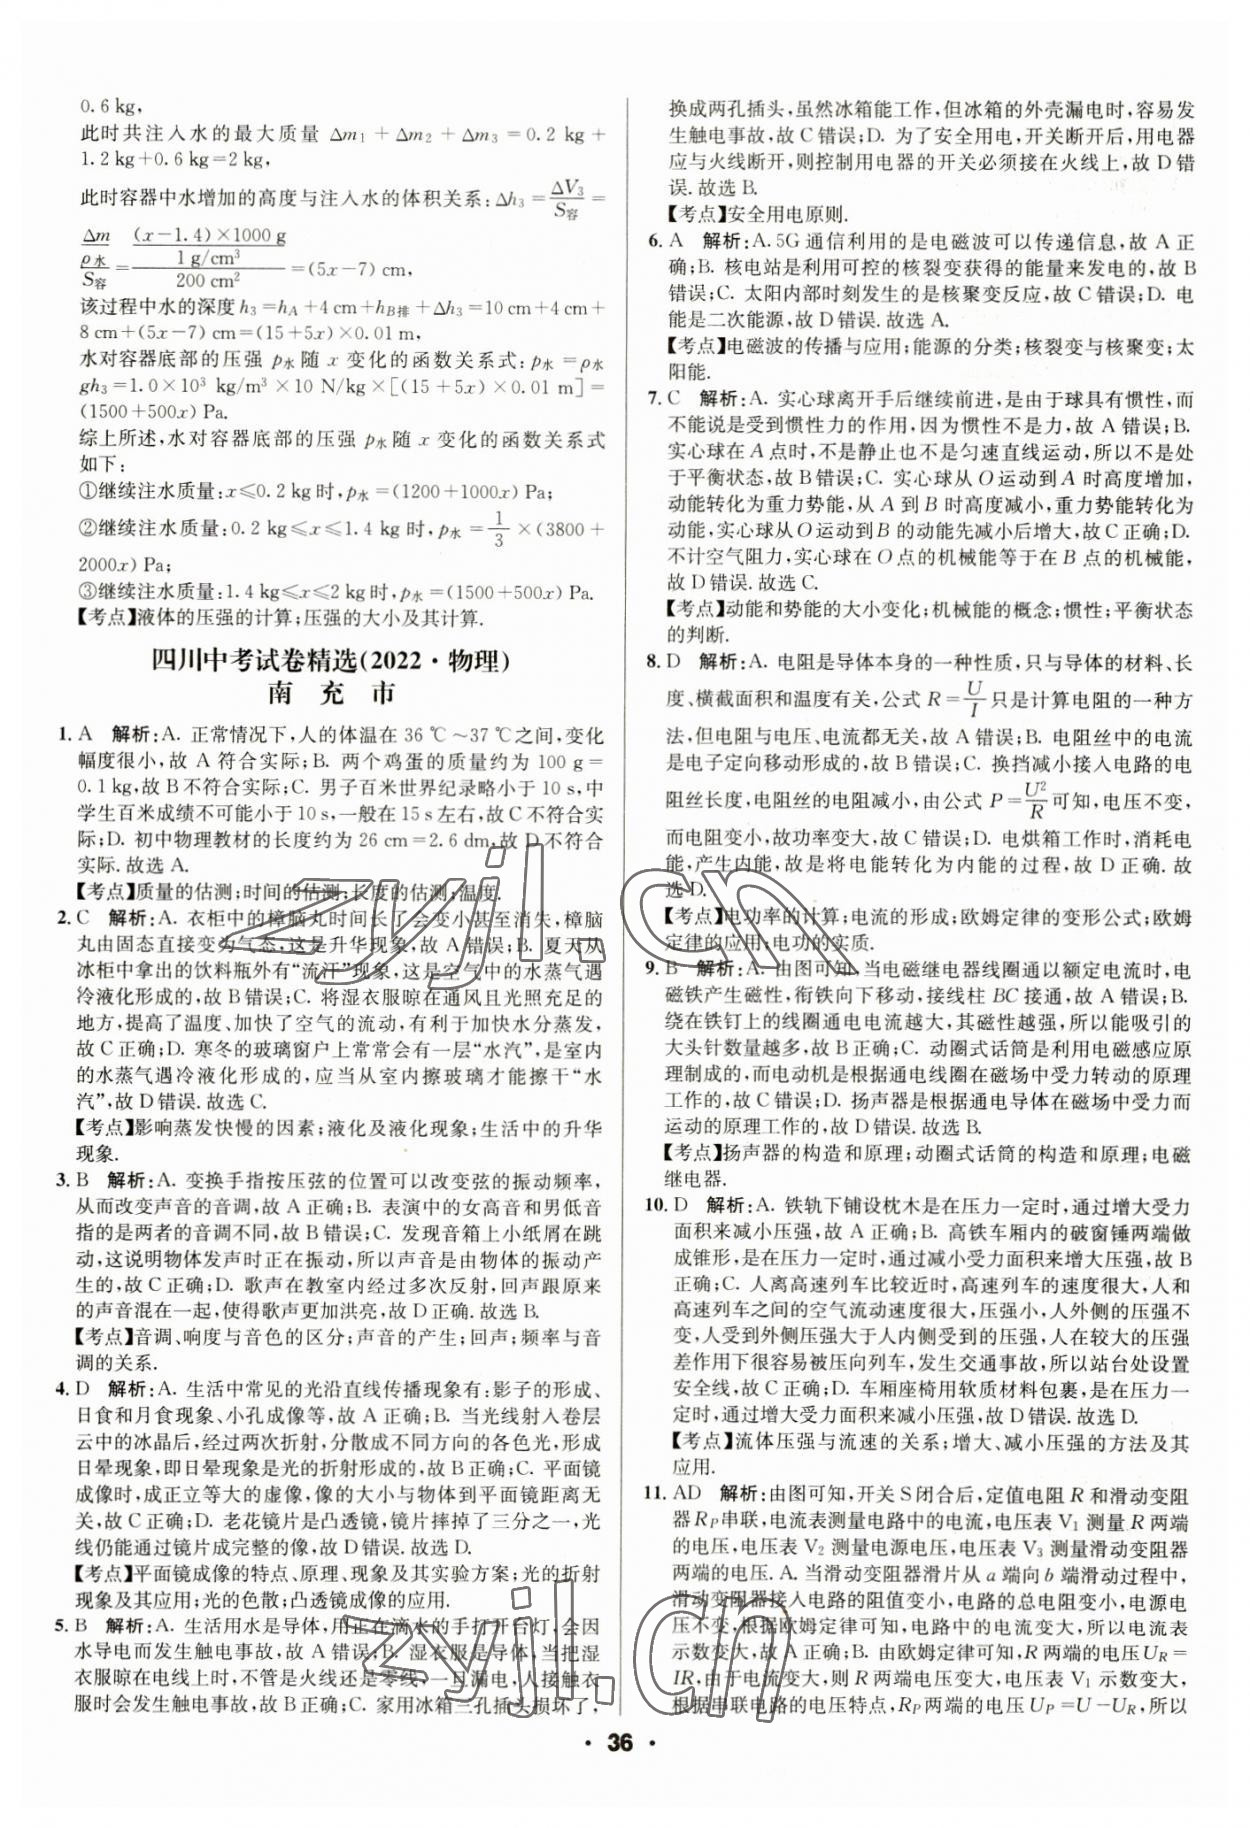 0.6 kg,
此时共注入水的最大质量 Δm₁+Δm₂+Δm₃=0.2 kg+
1.2 kg+0.6 kg=2 kg,
此时容器中水增加的高度与注入水的体积关系:Δh₃=ΔV₃/S容=
(Δm/ρ水)/S容=((x-1.4)×1000 g/1 g/cm³)/200 cm²=(5x-7) cm,
该过程中水的深度 h₃=hA+4 cm+hB排+Δh₃=10 cm+4 cm+
8 cm+(5x-7) cm=(15+5x)×0.01 m,
水对容器底部的压强 p水 随 x 变化的函数关系式:p水=ρ水
gh₃=1.0×10³ kg/m³×10 N/kg×[(15+5x)×0.01 m]=
(1500+500x) Pa.
综上所述,水对容器底部的压强 p水 随 x 变化的函数关系式
如下:
①继续注水质量:x≤0.2 kg时,p水=(1200+1000x) Pa;
②继续注水质量:0.2 kg≤x≤1.4 kg时,p水=1/3×(3800+
2000x) Pa;
③继续注水质量:1.4 kg≤x≤2 kg时,p水=(1500+500x) Pa.
【考点】液体的压强的计算;压强的大小及其计算.
四川中考试卷精选(2022·物理)
南 充 市
1. A 解析:A. 正常情况下,人的体温在 36 ℃~37 ℃之间,变化
幅度很小,故 A 符合实际;B. 两个鸡蛋的质量约为 100 g=
0.1 kg,故 B 不符合实际;C. 男子百米世界纪录略小于 10 s,中
学生百米成绩不可能小于 10 s,一般在 15 s左右,故 C 不符合实
际;D. 初中物理教材的长度约为 26 cm=2.6 dm,故 D 不符合
实际.故选 A.
【考点】质量的估测;时间的估测;长度的估测;温度.
2. C 解析:A. 衣柜中的樟脑丸时间长了会变小甚至消失,樟脑
丸由固态直接变为气态,这是升华现象,故 A 错误;B. 夏天从
冰柜中拿出的饮料瓶外有“流汗”现象,这是空气中的水蒸气遇
冷液化形成的,故 B 错误;C. 将湿衣服晾在通风且光照充足的
地方,提高了温度、加快了空气的流动,有利于加快水分蒸发,
故 C 正确;D. 寒冬的玻璃窗户上常常会有一层“水汽”,是室内
的水蒸气遇冷液化形成的,应当从室内擦玻璃才能擦干“水
汽”,故 D 错误.故选 C.
【考点】影响蒸发快慢的因素;液化及液化现象;生活中的升华
现象.
3. B 解析:A. 变换手指按压弦的位置可以改变弦的振动频率,
从而改变声音的音调,故 A 正确;B. 表演中的女高音和男低音
指的是两者的音调不同,故 B 错误;C. 发现音箱上小纸屑在跳
动,这说明物体发声时正在振动,所以声音是由物体的振动产
生的,故 C 正确;D. 歌声在教室内经过多次反射,回声跟原来
的声音混在一起,使得歌声更加洪亮,故 D 正确.故选 B.
【考点】音调、响度与音色的区分;声音的产生;回声;频率与音
调的关系.
4. D 解析:A. 生活中常见的光沿直线传播现象有:影子的形成、
日食和月食现象、小孔成像等,故 A 正确;B. 当光线射入卷层
云中的冰晶后,经过两次折射,分散成不同方向的各色光,形成
日晕现象,即日晕现象是光的折射形成的,故 B 正确;C. 平面镜
成像时,成正立等大的虚像,像的大小与物体到平面镜距离无
关,故 C 正确;D. 老花镜片是凸透镜,镜片摔掉了三分之一,光
线仍能通过镜片成完整的像,故 D 错误.故选 D.
【考点】平面镜成像的特点、原理、现象及其实验方案;光的折射
现象及其应用;光的色散;凸透镜成像的应用.
5. B 解析:A. 生活用水是导体,用正在滴水的手打开台灯,会因
水导电而发生触电事故,故 A 错误;B. 湿衣服是导体,当把湿
衣服晾在电线上时,不管是火线还是零线,一旦漏电,人接触衣
服时会发生触电事故,故 B 正确;C. 家用冰箱三孔插头损坏了,
换成两孔插头,虽然冰箱能工作,但冰箱的外壳漏电时,容易发
生触电事故,故 C 错误;D. 为了安全用电,开关断开后,用电器
应与火线断开,则控制用电器的开关必须接在火线上,故 D 错
误.故选 B.
【考点】安全用电原则.
6. A 解析:A. 5G 通信利用的是电磁波可以传递信息,故 A 正
确;B. 核电站是利用可控的核裂变获得的能量来发电的,故 B
错误;C. 太阳内部时刻发生的是核聚变反应,故 C 错误;D. 电
能是二次能源,故 D 错误.故选 A.
【考点】电磁波的传播与应用;能源的分类;核裂变与核聚变;太
阳能.
7. C 解析:A. 实心球离开手后继续前进,是由于球具有惯性,而
不能说是受到惯性力的作用,因为惯性不是力,故 A 错误;B.
实心球在 A 点时,不是静止也不是匀速直线运动,所以不是处
于平衡状态,故 B 错误;C. 实心球从 O 运动到 A 时高度增加,
动能转化为重力势能,从 A 到 B 时高度减小,重力势能转化为
动能,实心球从 O 运动到 B 的动能先减小后增大,故 C 正确;D.
不计空气阻力,实心球在 O 点的机械能等于在 B 点的机械能,
故 D 错误.故选 C.
【考点】动能和势能的大小变化;机械能的概念;惯性;平衡状态
的判断.
8. D 解析:A. 电阻是导体本身的一种性质,只与导体的材料、长
度、横截面积和温度有关,公式 R=U/I只是计算电阻的一种方
法,但电阻与电压、电流都无关,故 A 错误;B. 电阻丝中的电流
是电子定向移动形成的,故 B 错误;C. 换挡减小接入电路的电
阻丝长度,电阻丝的电阻减小,由公式 P=U²/R可知,电压不变,
而电阻变小,故功率变大,故 C 错误;D. 电烘箱工作时,消耗电
能,产生内能,故是将电能转化为内能的过程,故 D 正确.故
选 D.
【考点】电功率的计算;电流的形成;欧姆定律的变形公式;欧姆
定律的应用;电功的实质.
9. B 解析:A. 由图可知,当电磁继电器线圈通以额定电流时,电
磁铁产生磁性,衔铁向下移动,接线柱 BC 接通,故 A 错误;B.
绕在铁钉上的线圈通电电流越大,其磁性越强,所以能吸引的
大头针数量越多,故 B 正确;C. 动圈式话筒是利用电磁感应原
理制成的,而电动机是根据通电线圈在磁场中受力转动的原理
工作的,故 C 错误;D. 扬声器是根据通电导体在磁场中受力而
运动的原理工作的,故 D 错误.故选 B.
【考点】扬声器的构造和原理;动圈式话筒的构造和原理;电磁
继电器.
10. D 解析:A. 铁轨下铺设枕木是在压力一定时,通过增大受力
面积来减小压强,故 A 正确;B. 高铁车厢内的破窗锤两端做
成锥形,是在压力一定时,通过减小受力面积来增大压强,故 B
正确;C. 人离高速列车比较近时,高速列车的速度很大,人和
高速列车之间的空气流动速度很大,压强小,人外侧的压强不
变,人受到外侧压强大于人内侧受到的压强,人在较大的压强
差作用下很容易被压向列车,发生交通事故,所以站台处设置
安全线,故 C 正确;D. 车厢座椅用软质材料包裹,是在压力一
定时,通过增大受力面积来减小压强,故 D 错误.故选 D.
【考点】流体压强与流速的关系;增大、减小压强的方法及其
应用.
11. AD 解析:由图可知,开关 S 闭合后,定值电阻 R 和滑动变阻
器 RP 串联,电流表测量电路中的电流,电压表 V₁ 测量 R 两端
的电压,电压表 V₂ 测量电源电压,电压表 V₃ 测量滑动变阻器
两端的电压. A. 当滑动变阻器滑片从 a 端向 b 端滑动过程中,
滑动变阻器接入电路的阻值变小,电路的总电阻变小,电源电
压不变,根据欧姆定律可知,电路中的电流变大,所以电流表
示数变大,故 A 正确;B. 由欧姆定律可知,R 两端的电压 UR=
IR,由于电流变大,则 R 两端电压变大,电压表 V₁ 示数变大,
根据串联电路的电压特点,RP 两端的电压 UP=U-UR,所以
· 36 ·
zyjl.cn
zyjl.cn